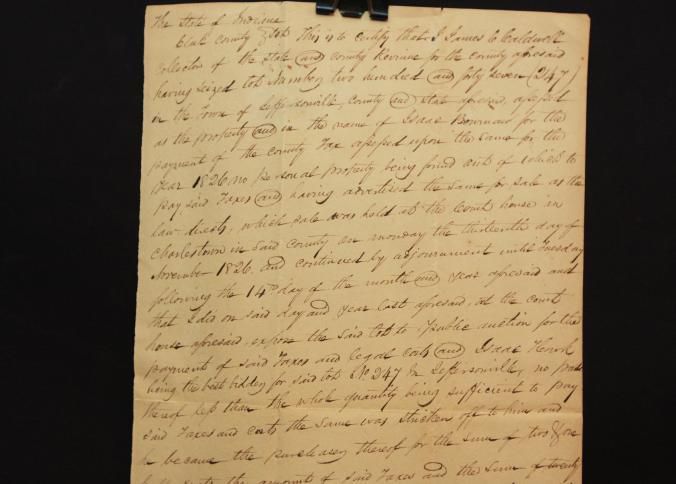 The State of Indiana
Clark County Sct. This is to certify that I James C Caldwell
Collector of the State and County Revinue for the county aforesaid
having seized lott Number two hundred and forty seven (247)
in the Town of Jeffersonville, County and State aforesaid, assessed
as the property and in the name of Isaac Bowman for the
payment of the County Tax assessed upon the same for the
year 1826, no personal property being found out of which to
pay said Taxes and having advertised the same for sale as the
law directs, which sale was held at the Court house in
Charlestown in said County on monday the thirteenth day of
November 1826, and continued by adjournment until Tuesday
following the 14th day of the month and year aforesaid and
that I did on said day and year last aforesaid, at the court
house aforesaid, expose the said lott to Publick auction for the
payment of said Taxes and legal costs and Isaac
being the best bidder for said lott No 247 in Jeffersonville, no part
thereof less than the whole quantity being sufficient to pay
said Taxes and costs the same was stricken off to him and
he became the purchaser thereof for the sum of two
the amount of said Taxes and the sum of twenty